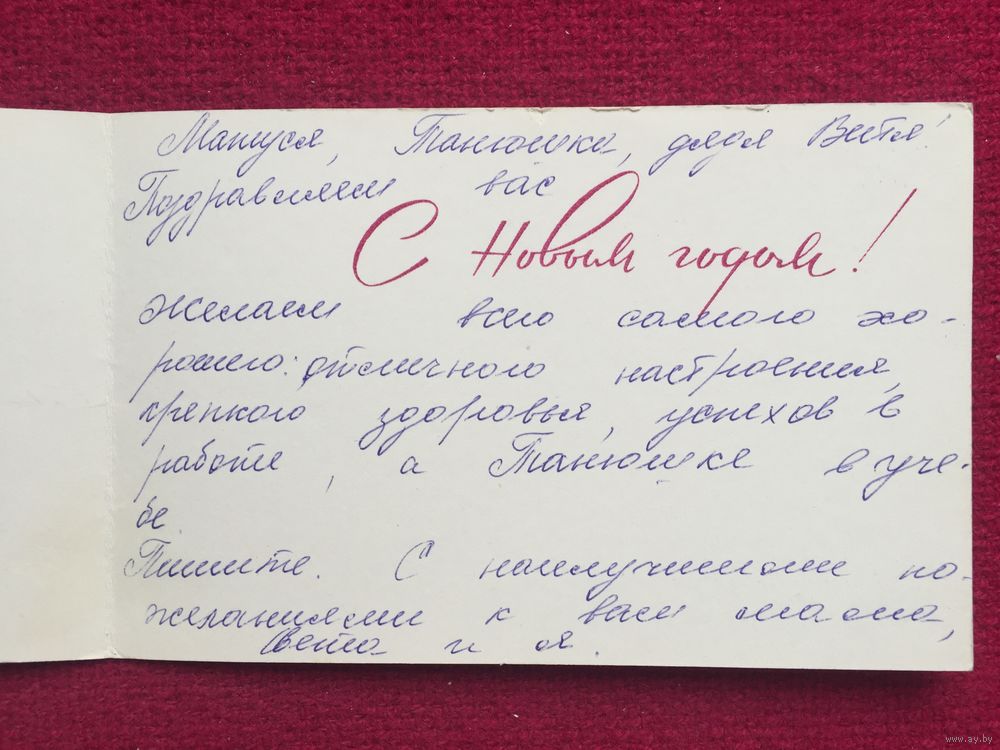 Мануся, Танюшка, дядя Витя!
Поздравляем вас
С Новым годом!
Желаем всего самого хо-
рошего: отличного настроения,
крепкого здоровья, успехов в
работе, а Танюшке в уче-
бе.
Пишите. С наилучшими по-
желаниями к вам мама,
Света и я.
www.ay.by